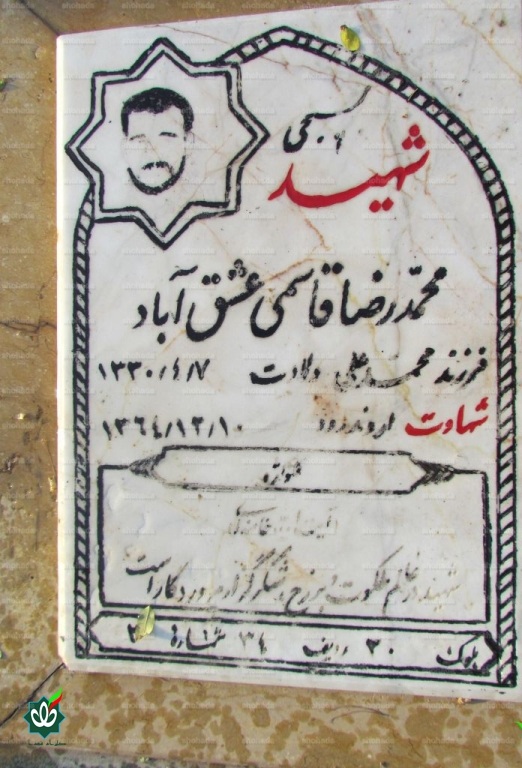 بسیجی
شهید
محمدرضا قاسمی عشق آباد
فرزند محمدعلی ولادت ۱۳۳۰/۴/۷
شهادت اروندرود ۱۳۶۴/۱۲/۱۰
شهید در عالم ملکوت و برزخ شکرگزار پروردگار است
بلوک ۲۰ ردیف ۳۴ شماره